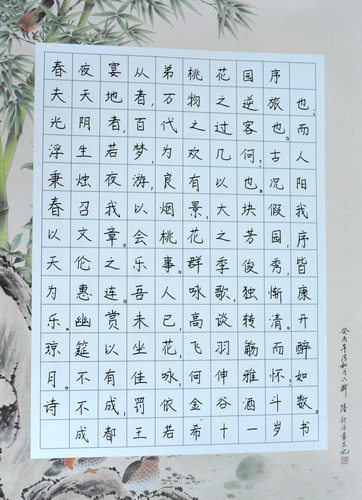 春夜宴从弟桃花园序
夫天地者,万物之逆旅也;
光阴者,百代之过客也。而
浮生若梦,为欢几何。古人
秉烛夜游,良有以也。况阳
春召我以烟景,大块假我
以文章。会桃花之芳园,序
天伦之乐事。群季俊秀,皆
为惠连。吾人咏歌,独惭康
乐。幽赏未已,高谈转清。开
琼筵以坐花,飞羽觞而醉
月。不有佳咏,何伸雅怀,如
诗不成,罚依金谷酒斗数。
成都王若希十一岁书